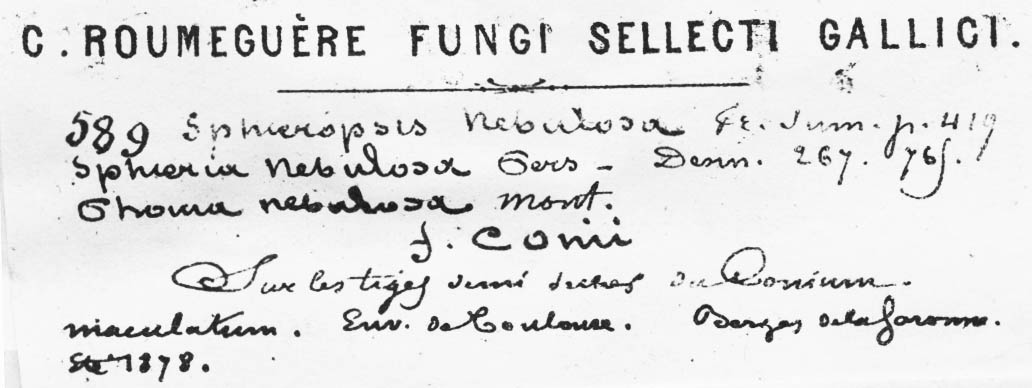 C. ROUMEGUÈRE FUNGI SELLECTI GALLICI.
589 Sphæropsis Nebulosa Fr. Sum. p. 419
Sphæria Nebulosa Pers - Desm. 267. 765.
Phoma nebulosa Mont.
f. Conii
Sur les tiges demi sèches du Conium.
maculatum. Env. de Toulouse. Berges de la Garonne.
Eté 1878.